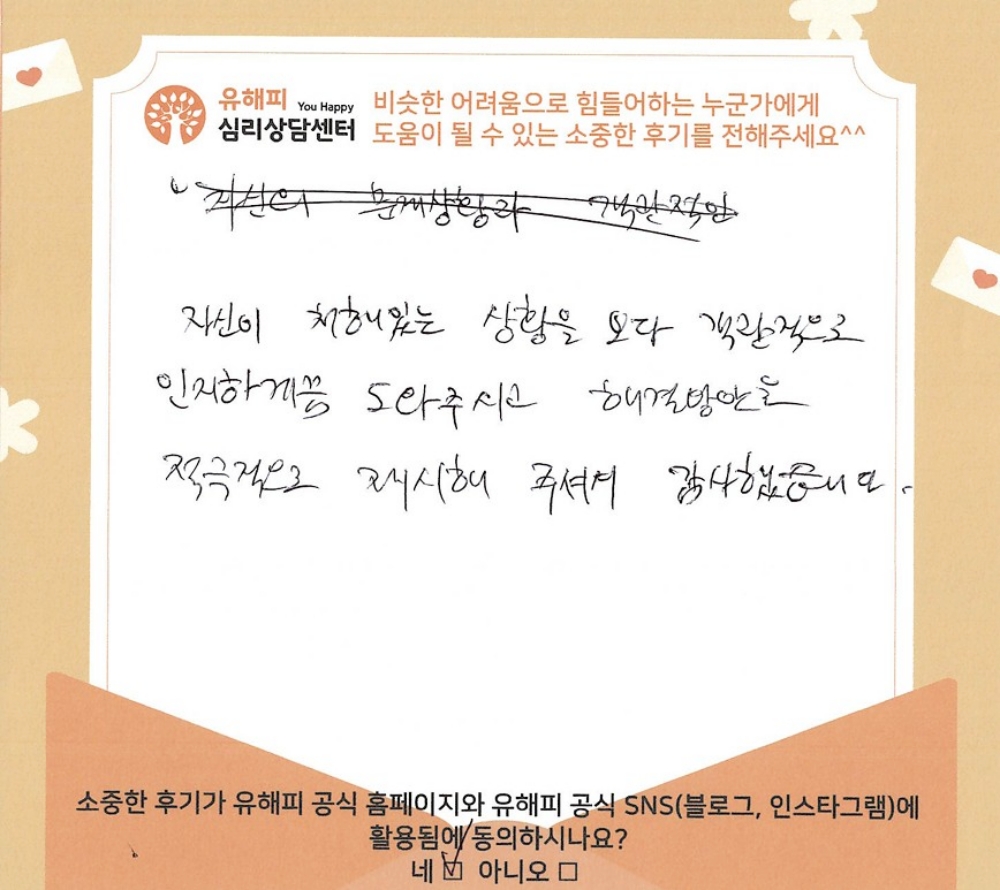 유해피 You Happy
심리상담센터
비슷한 어려움으로 힘들어하는 누군가에게
도움이 될 수 있는 소중한 후기를 전해주세요^^
자신의 문제상황과 객관적인
자신이 처해있는 상황을 보다 객관적으로
인지하게끔 도와주시고 해결방안을
적극적으로 제시해 주셔서 감사했습니다.
소중한 후기가 유해피 공식 홈페이지와 유해피 공식 SNS(블로그, 인스타그램)에
활용됨에 동의하시나요?
네 ☑ 아니오 ☐